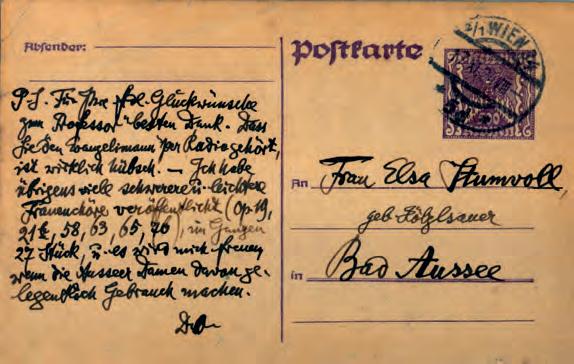 Absender:
P.S. Für Ihre frdl. Glückwünsche
zum "Professor" besten Dank. Dass
Sie den Evangelimann per Radio gehört,
ist wirklich hübsch. — Ich habe
übrigens viele schwerere u. leichtere
Frauenchöre veröffentlicht (Op. 19,
58, 63, 65, 76), im Ganzen
27 Stück, u. es wird mich freuen
wenn die Ausseer Damen davon ge-
legentlich Gebrauch machen.
Postkarte
WIEN
An Frau Elsa Stumvoll,
geb. Kölzlsauer
in Bad Aussee